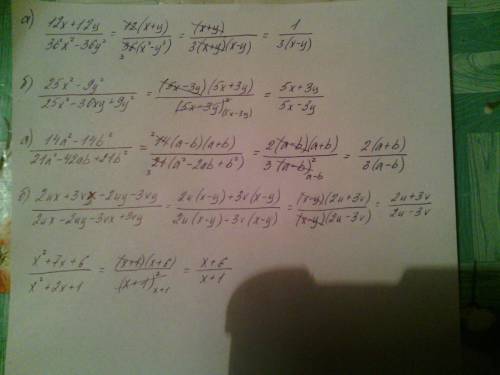 а) (12x+12y)/(36x²-36y²) = 12(x+y)/36(x²-y²) = (x+y)/3(x+y)(x-y) = 1/3(x-y)
б) (25x²-9y²)/(25x²-30xy+9y²) = (5x-3y)(5x+3y)/(5x-3y)² = (5x+3y)/(5x-3y)
а) (14a²-14b²)/(21a²-42ab+21b²) = 14(a-b)(a+b)/21(a²-2ab+b²) = 2(a-b)(a+b)/3(a-b)² = 2(a+b)/3(a-b)
б) (2ux+3vx-2uy-3vy)/(2ux-2uy-3vx+3vy) = (2u(x-y)+3v(x-y))/(2u(x-y)-3v(x-y)) = (x-y)(2u+3v)/(x-y)(2u-3v) = (2u+3v)/(2u-3v)
(x²+7x+6)/(x²+2x+1) = (x+1)(x+6)/(x+1)² = (x+6)/(x+1)